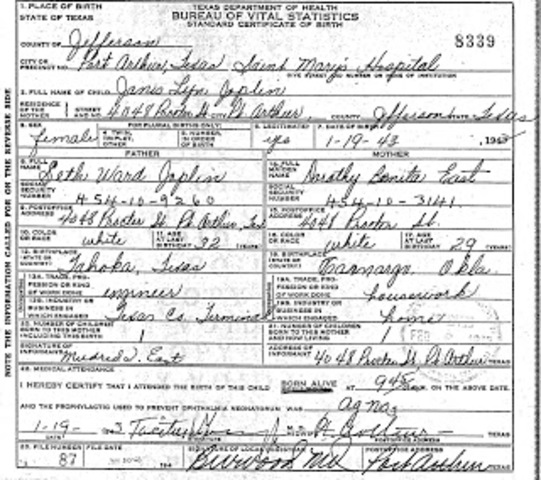 1. PLACE OF BIRTH
STATE OF TEXAS
TEXAS DEPARTMENT OF HEALTH
BUREAU OF VITAL STATISTICS
STANDARD CERTIFICATE OF BIRTH
COUNTY OF Jefferson
8339
CITY OR PRECINCT NO. Port Arthur, Texas Saint Mary's Hospital
2. FULL NAME OF CHILD Janis Lyn Joplin
RESIDENCE OF THE MOTHER STREET AND NO. 4048 Procter St. CITY Pt. Arthur, COUNTY Jefferson STATE Texas
3. SEX female
FOR PLURAL BIRTHS ONLY:
4. TWIN, TRIPLET, OTHER
5. NUMBER IN ORDER OF BIRTH
6. LEGITIMATE? yes
7. DATE OF BIRTH 1-19-43
FATHER
MOTHER
8. FULL NAME Seth Ward Joplin
14. FULL MAIDEN NAME Dorothy Bonita East
SOCIAL SECURITY NUMBER
SOCIAL SECURITY NUMBER
9. POSTOFFICE ADDRESS 4048 Procter St. Pt. Arthur, Tex
15. POSTOFFICE ADDRESS 4048 Procter St.
10. COLOR OR RACE white
11. AGE AT LAST BIRTHDAY 32
16. COLOR OR RACE white
17. AGE AT LAST BIRTHDAY 29 YEARS
12. BIRTHPLACE Tahoka, Texas
18. BIRTHPLACE Okla.
13A. TRADE, PROFESSION OR KIND OF WORK DONE engineer
19A. TRADE, PROFESSION OR KIND OF WORK DONE housework
13B. INDUSTRY OR BUSINESS IN WHICH ENGAGED Texas Co. Terminal
19B. INDUSTRY OR BUSINESS IN WHICH ENGAGED home
20. NUMBER OF CHILDREN BORN TO THIS MOTHER INCLUDING THIS BIRTH 1
21. NUMBER OF CHILDREN BORN TO THIS MOTHER AND NOW LIVING 1
FEB
SIGNATURE OF INFORMANT East
ADDRESS OF INFORMANT 4048 Procter St. Pt. Arthur TEXAS
22. MEDICAL ATTENDANCE
I HEREBY CERTIFY THAT I ATTENDED THE BIRTH OF THIS CHILD BORN ALIVE AT 945 M. ON THE ABOVE DATE.
AND THE PROPHYLACTIC USED TO PREVENT OPHTHALMIA NEONATORUM WAS
1-19-
DATE
SIGNATURE
M.D.
POSTOFFICE ADDRESS
TEXAS
23. FILE NUMBER 87
FILE DATE
SIGNATURE OF LOCAL REGISTRAR
POSTOFFICE ADDRESS Port Arthur TEXAS
NOTE THE INFORMATION CALLED FOR ON THE REVERSE SIDE